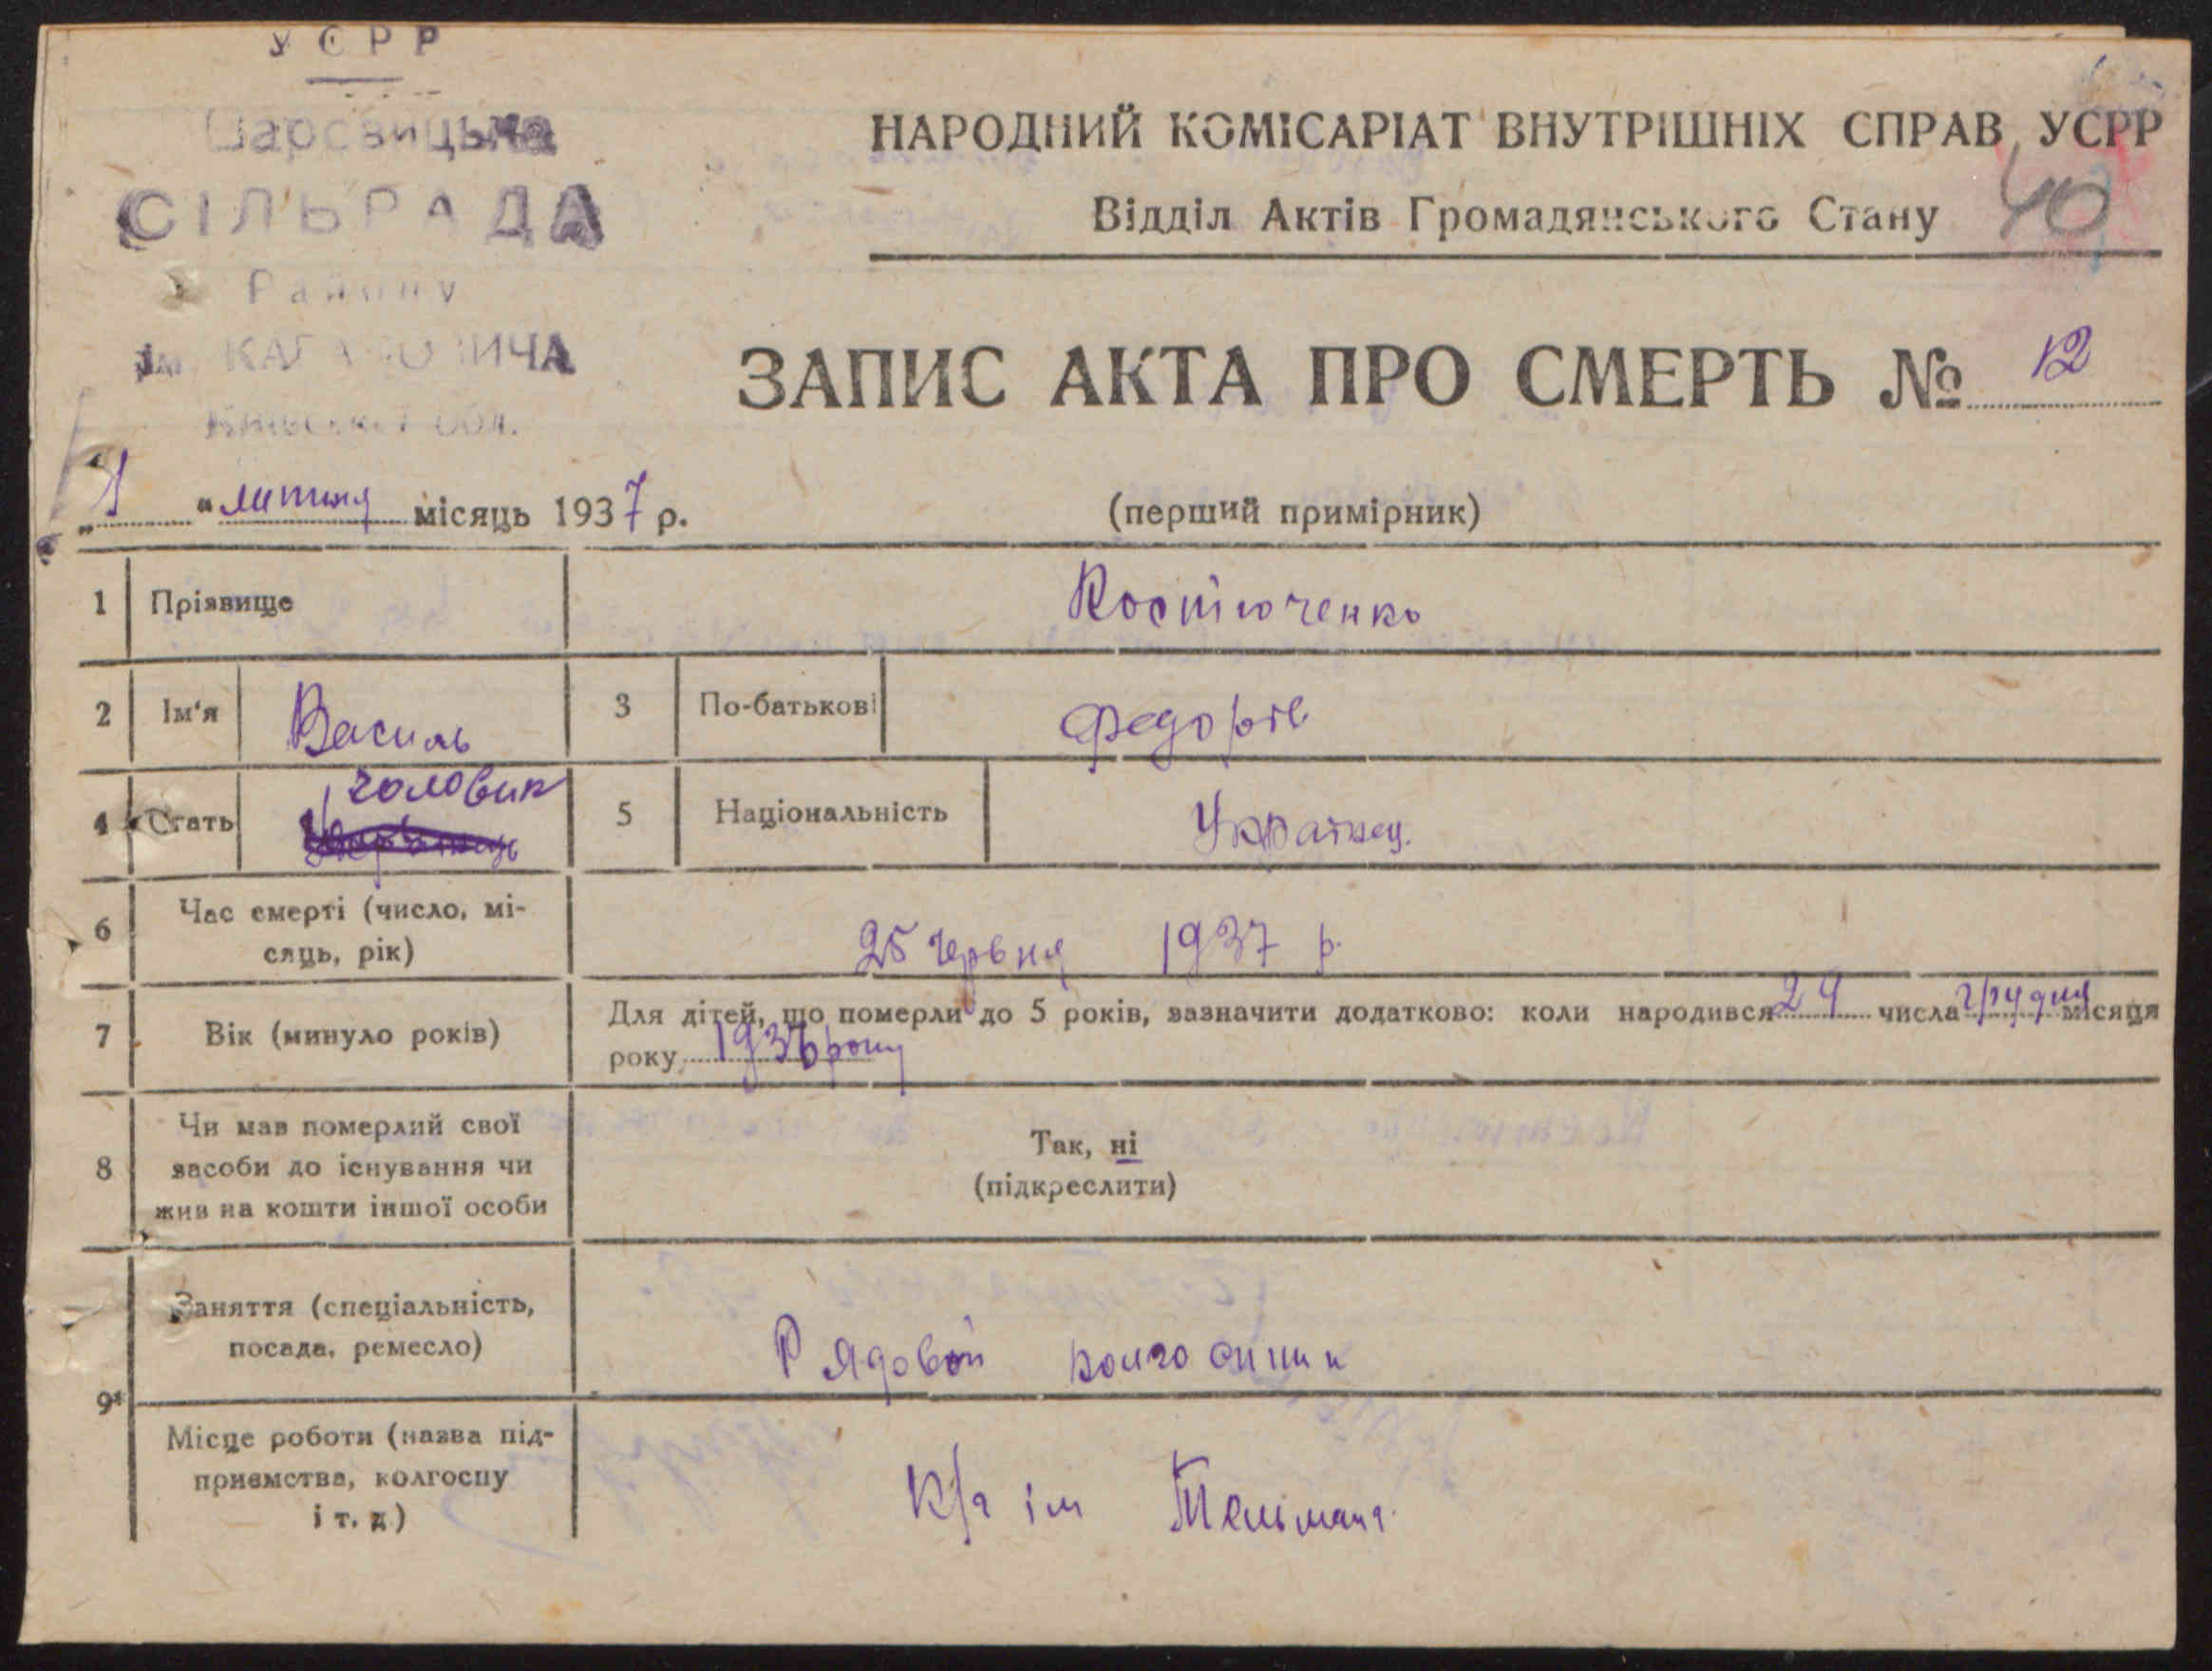 УСРР
СІЛЬРАДА
Району
ім КАГАНОВИЧА
Київської обл.
НАРОДНИЙ КОМІСАРІАТ ВНУТРІШНІХ СПРАВ УСРР
Відділ Актів Громадянського Стану
40
ЗАПИС АКТА ПРО СМЕРТЬ № 12
„1 " липня місяць 1937 р.
(перший примірник)
1 Прізвище Костюченко
2 Ім'я Василь 3 По-батькові Федорів
4 Стать чоловик 5 Національність Украінец.
6 Час смерті (число, мі-
сяць, рік) 25 червня 1937 р.
7 Вік (минуло років) Для дітей, що померли до 5 років, зазначити додатково: коли народився 29 числа грудня місяця
року 1936 року
8 Чи мав померлий свої
засоби до існування чи
жив на кошти іншої особи
Так, ні
(підкреслити)
9*
Заняття (спеціальність,
посада, ремесло) Рядовой
Місце роботи (назва під-
приємства, колгоспу
і т. д) К/г ім Тельмана